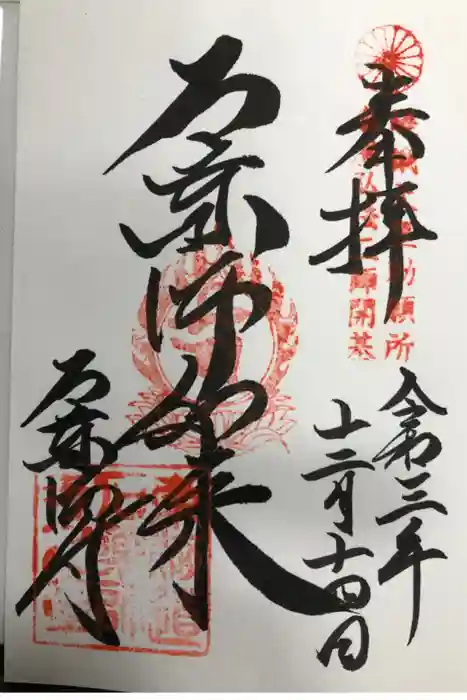 奉拝
勅願所
弘法大師開基
令和三年
十二月十四日
石薬師如来
石薬師寺